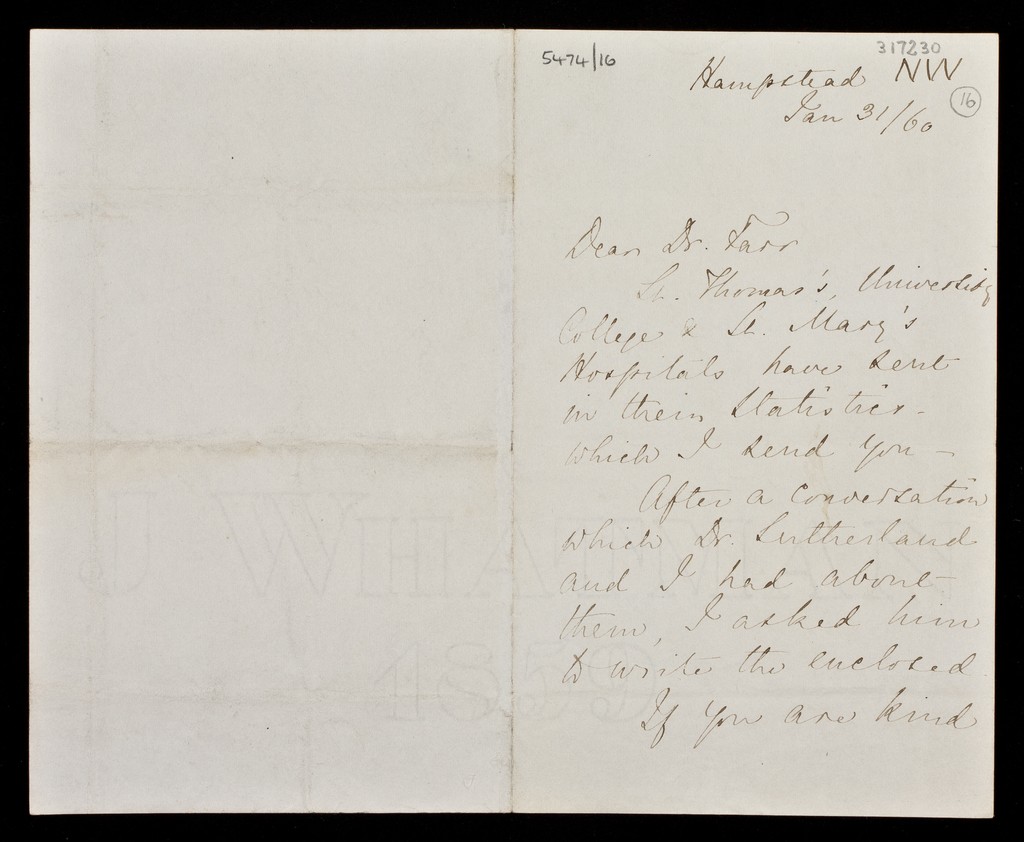 5474/16
317230
Hampstead NW
16
Jan 31/60
Dear Dr. Farr
St. Thomas's, University
College & St. Mary's
Hospitals have sent
in their Statistics -
which I send you -
After a conversation
which Dr. Sutherland
and I had about
them, I asked him
to write the enclosed
If you are kind
J WHATMAN
1859